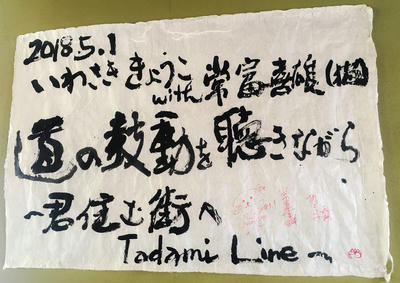 2018.5.1
いわさききょうこ
with 常富喜雄
道の鼓動を聴きながら
〜君住む街へ
Tadami Line〜